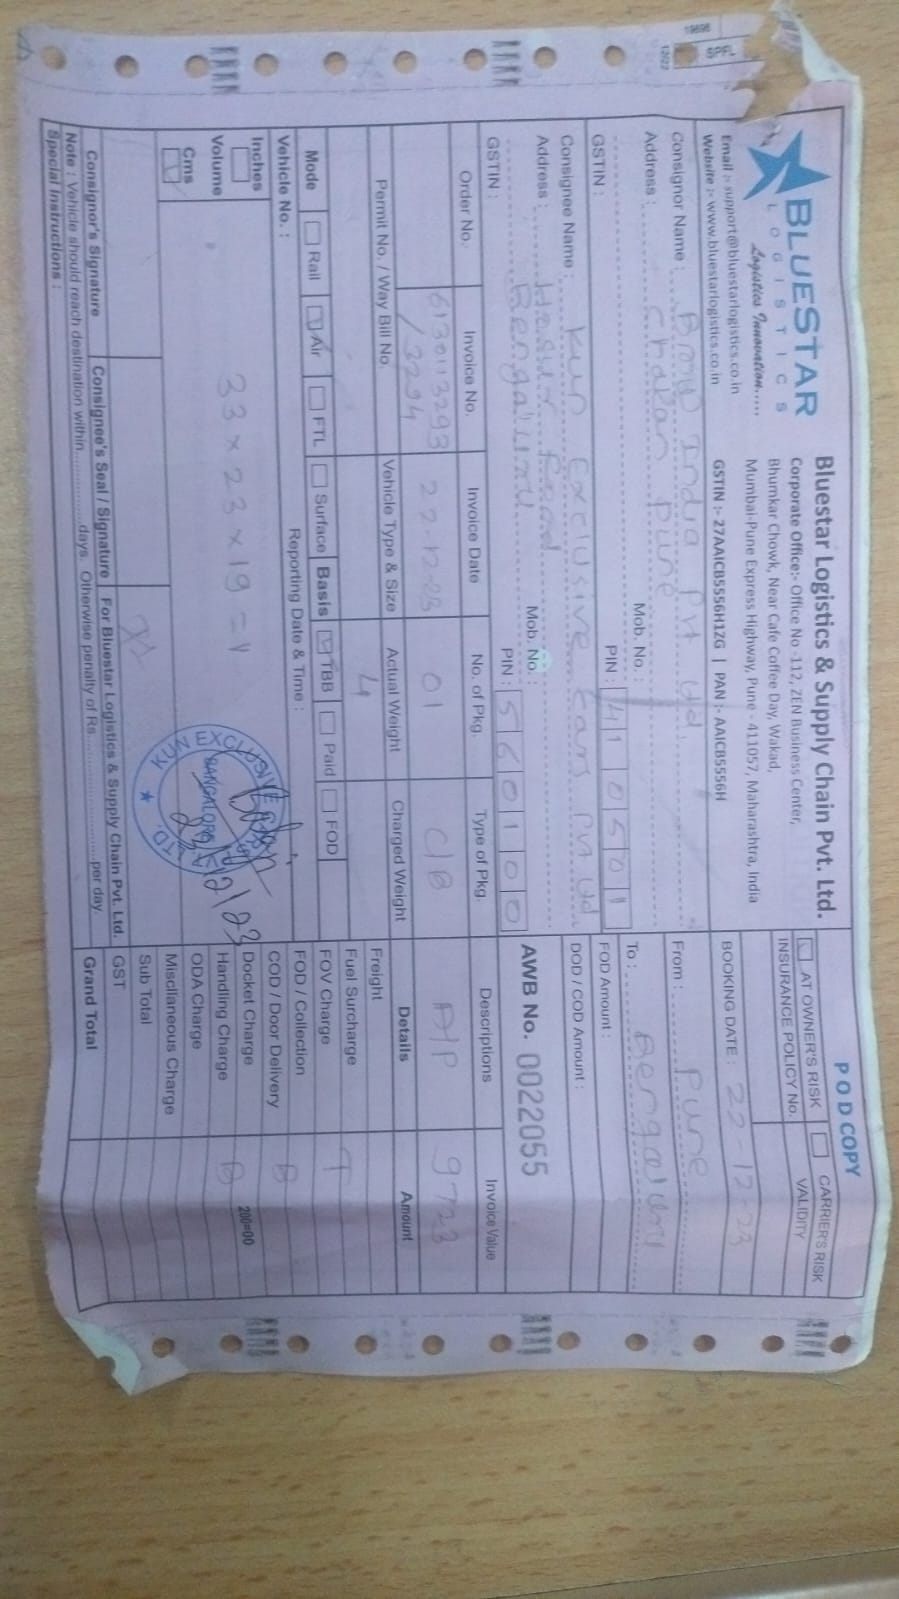 POD COPY
BLUESTAR
LOGISTICS
Logistics Innovation.....
Email :- support@bluestarlogistics.co.in
Website :- www.bluestarlogistics.co.in
Bluestar Logistics & Supply Chain Pvt. Ltd.
Corporate Office:- Office No -112, ZEN Business Center,
Bhumkar Chowk, Near Cafe Coffee Day, Wakad,
Mumbai-Pune Express Highway, Pune - 411057, Maharashtra, India
GSTIN :- 27AAICB5556H1ZG | PAN :- AAICB5556H
AT OWNER'S RISK CARRIER'S RISK
INSURANCE POLICY No. VALIDITY
BOOKING DATE : 22-12-23
From : Pune
To : Bengaluru
FOD Amount :
DOD / COD Amount :
AWB No. 0022055
Consignor Name : BMW India Pvt Ltd.
Address : Chakan Pune
Mob. No. :
GSTIN : PIN : 410501
Consignee Name : Kun Exclusive Cars Pvt Ltd
Address : Hosur Road
Bengaluru Mob. No. :
GSTIN : PIN : 560100
Order No. Invoice No. Invoice Date No. of Pkg. Type of Pkg. Descriptions Invoice Value
6130113293 22-12-23 01 C/B A/P 9723
/3294
Permit No. / Way Bill No. Vehicle Type & Size Actual Weight Charged Weight Details Amount
4
Mode Rail Air FTL Surface Basis TBB Paid FOD
Vehicle No. : Reporting Date & Time :
Inches
Volume
Cms
33 x 23 x 19 = 1
KUN EXCLUSIVE CARS PVT. LTD.
BANGALORE
23/12/23
Freight
Fuel Surcharge
FOV Charge T
FOD / Collection
COD / Door Delivery B
Docket Charge 200=00
Handling Charge B
ODA Charge
Miscllaneous Charge
Sub Total
GST
Grand Total
Consignor's Signature Consignee's Seal / Signature For Bluestar Logistics & Supply Chain Pvt. Ltd.
Note : Vehicle should reach destination within................days. Otherwise penalty of Rs............................per day.
Special Instructions :
12/22